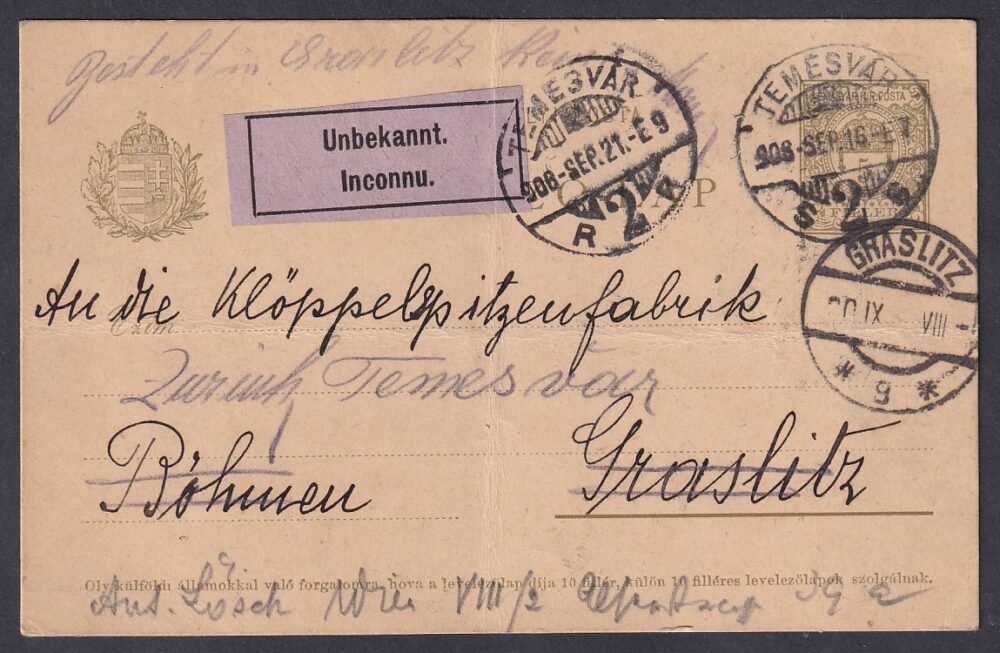 Besteht in Graslitz kein
Unbekannt.
Inconnu.
TEMESVÁR
908-SEP.21.-E9
VI 2
R K
TEMESVÁR
908-SEP.16.-E7
VI 2
S B
MAGYAR KIR. POSTA
5
FILLÉR
GRASLITZ
IX VIII
* g *
An die Klöppelspitzenfabrik
Czím
Zurück Temesvár
Böhmen Graslitz
Oly külföldi államokkal való forgalomra, hova a levelezőlap díja 10 fillér, külön 10 filléres levelezőlapok szolgálnak.
Ant. Lösch Wien VIII/2 39 a